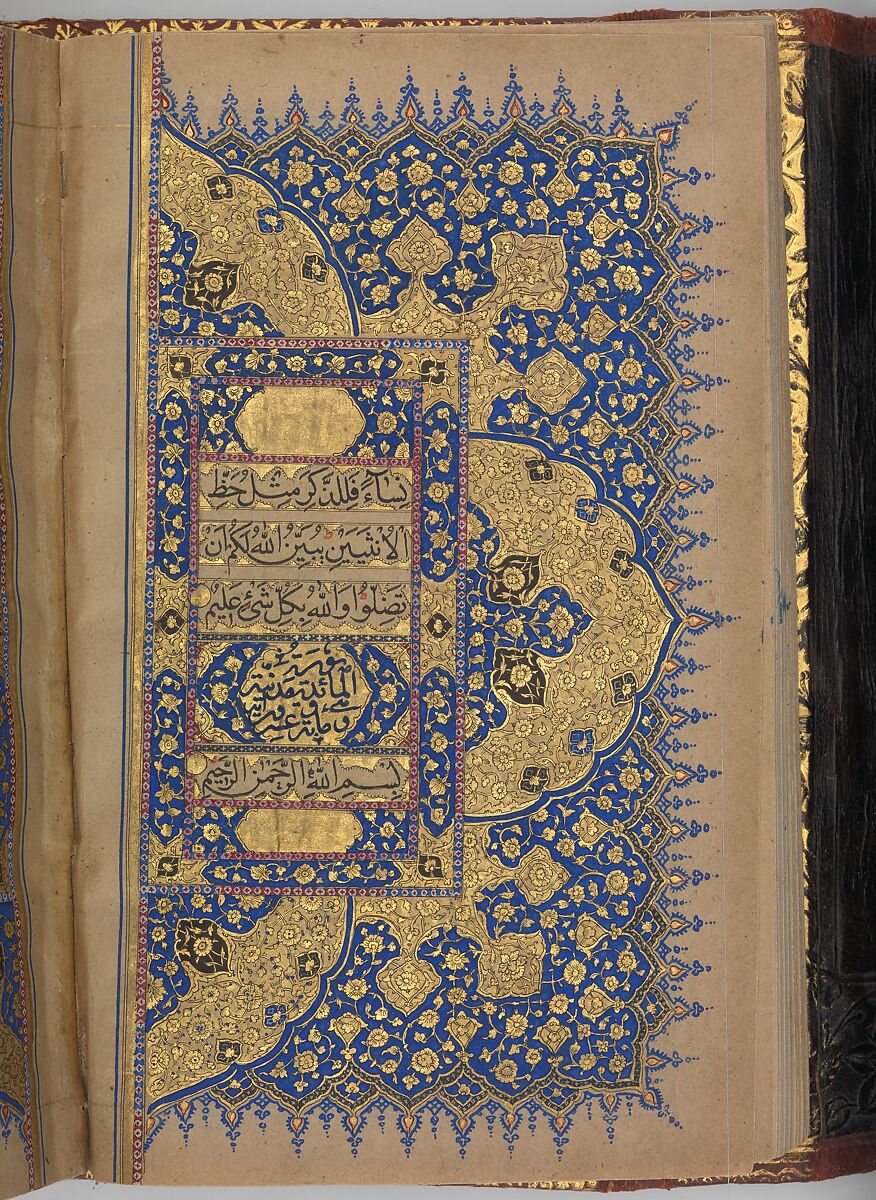 نِسَاءً فَلِلذَّكَرِ مِثْلُ حَظِّ
الْاُنْثَيَيْنِ يُبَيِّنُ اللهُ لَكُمْ اَنْ
تَضِلُّوا وَاللهُ بِكُلِّ شَیْءٍ عَلِيمٌ
سورة
المائدة مدنية
بِسْمِ اللهِ الرَّحْمٰنِ الرَّحِيمِ